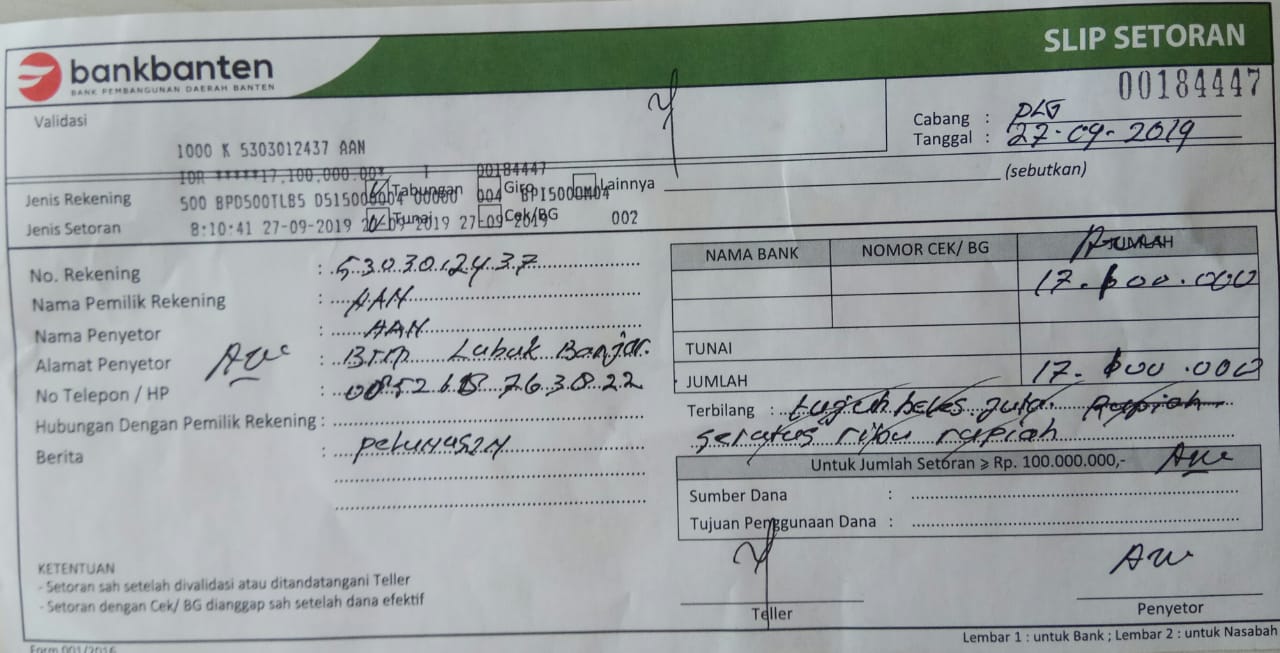 bankbanten
BANK PEMBANGUNAN DAERAH BANTEN
SLIP SETORAN
00184447
Validasi
Cabang : PLG
Tanggal : 27-09-2019
1000 K 5303012437 AAN
IDR *****17,100,000.00* 00184447
(sebutkan)
Jenis Rekening Tabungan Giro Lainnya
500 BPD500TLB5 00000 004 BPI5000M04
Jenis Setoran Tunai Cek/BG
8:10:41 27-09-2019 27-09-2019 002
No. Rekening : 5303012437
Nama Pemilik Rekening : AAN
Nama Penyetor : AAN
Alamat Penyetor : BTM Lubuk Banjar.
No Telepon / HP :
Hubungan Dengan Pemilik Rekening :
Berita : pelunasan
NAMA BANK NOMOR CEK/ BG JUMLAH
17.100.000
TUNAI
JUMLAH 17.100.000
Terbilang : tujuh belas juta Rupiah
seratus ribu rapiah
Untuk Jumlah Setoran ≥ Rp. 100.000.000,-
Sumber Dana :
Tujuan Penggunaan Dana :
KETENTUAN
- Setoran sah setelah divalidasi atau ditandatangani Teller
- Setoran dengan Cek/ BG dianggap sah setelah dana efektif
Teller
Penyetor
Lembar 1 : untuk Bank ; Lembar 2 : untuk Nasabah
Form 001/2016